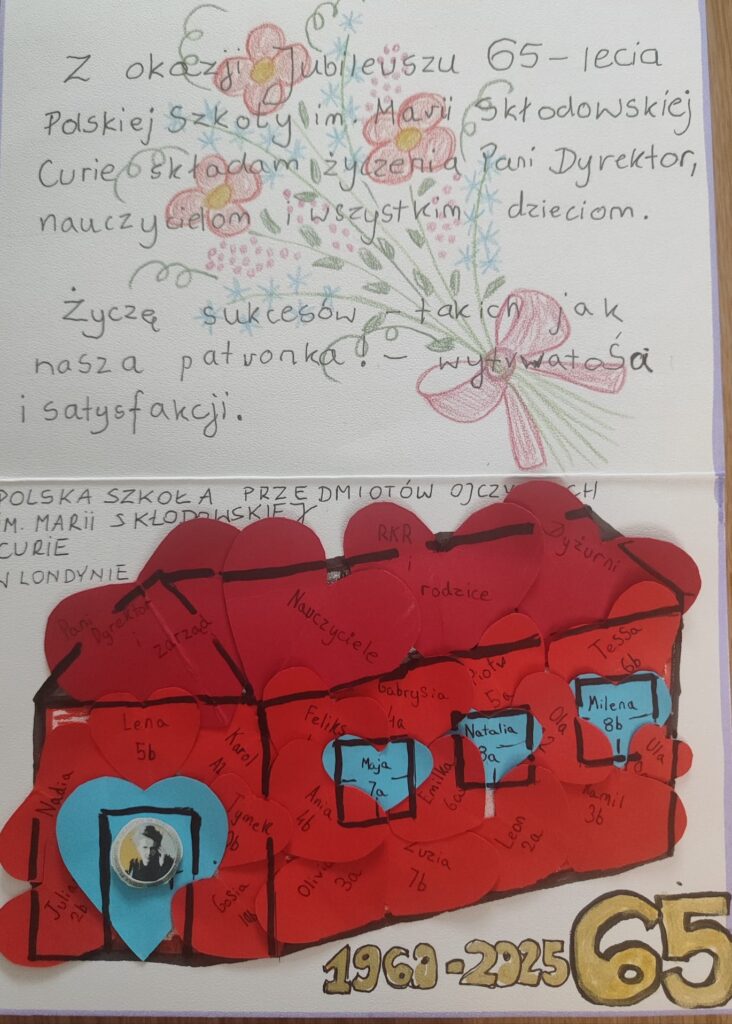 Z okazji Jubileuszu 65-lecia
Polskiej Szkoły im. Marii Skłodowskiej
Curie składam życzenia Pani Dyrektor,
nauczycielom i wszystkim dzieciom.
Życzę sukcesów - takich jak
nasza patronka! - wytrwałości
i satysfakcji.
POLSKA SZKOŁA PRZEDMIOTÓW OJCZYSTYCH
IM. MARII SKŁODOWSKIEJ
CURIE
W LONDYNIE
Pani
Dyrektor
i
zarząd
Nauczyciele
RKR
i
rodzice
Dyżurni
Lena
5b
Karol
Feliks
Gabrysia
4a
Piotr
5a
Ola
Tessa
6b
Milena
8b
Ula
Nadia
Maja
7a
Natalia
8a
Tymek
Ania
4b
Emilka
6a
Kamil
3b
Julia
2b
Gosia
Oliwia
3a
Zuzia
7b
Leon
2a
1960-2025
65